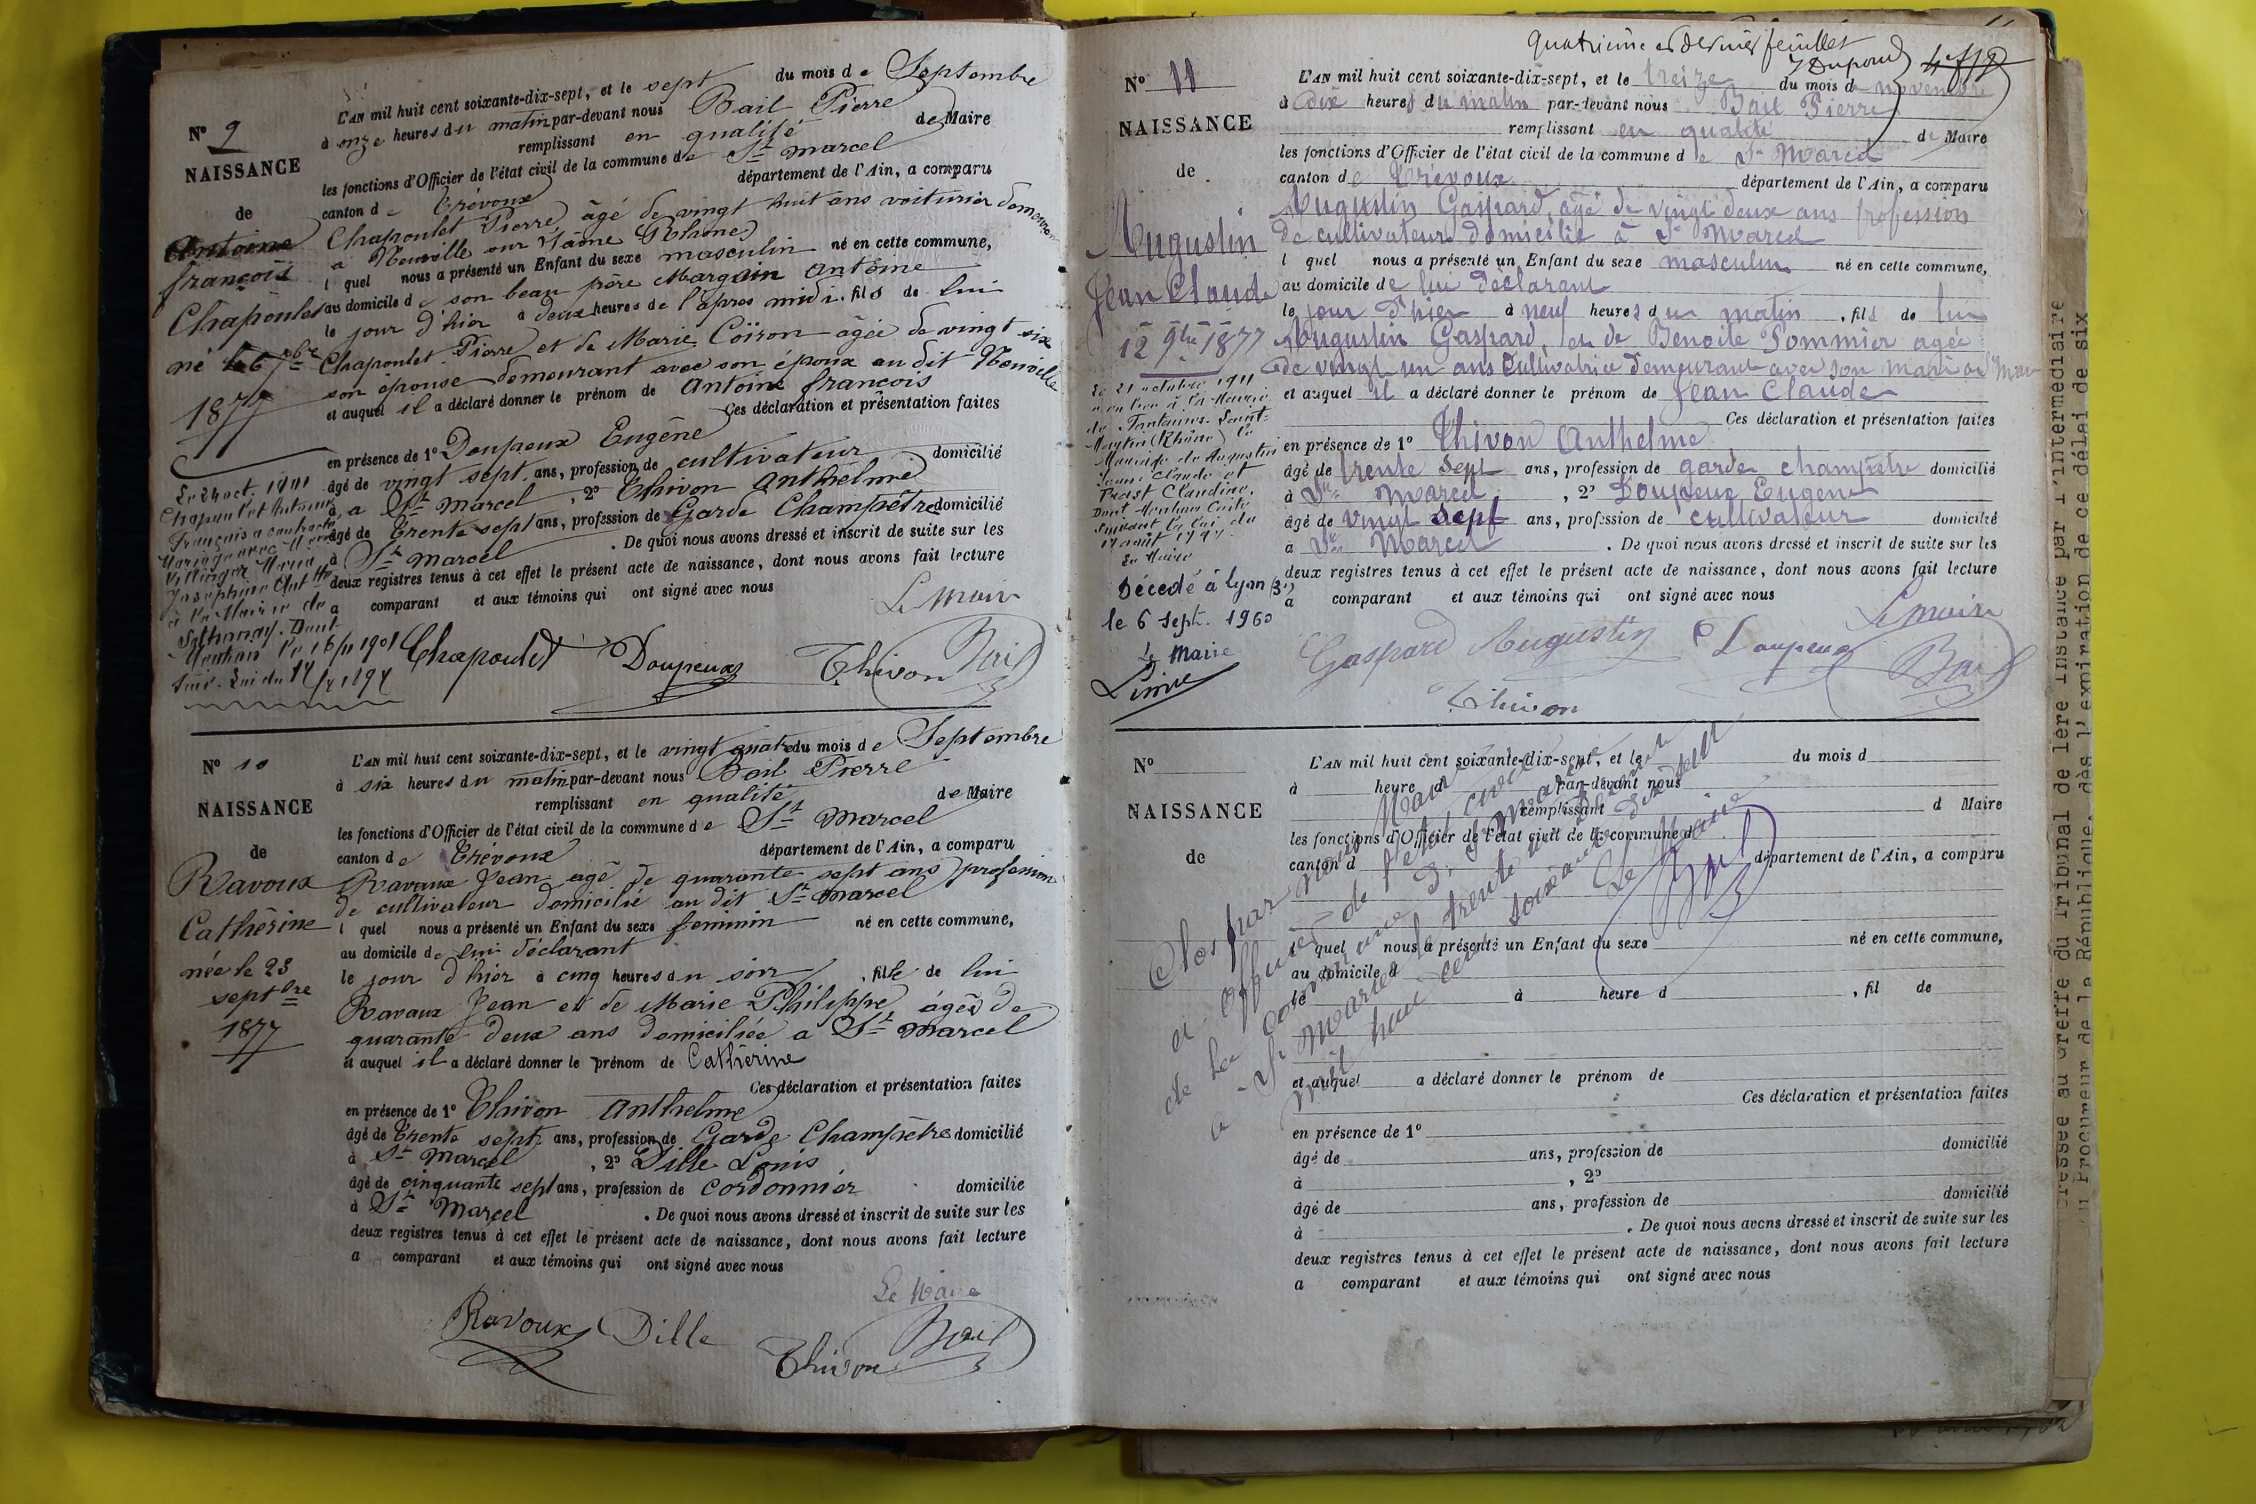 N° 9
NAISSANCE
de
Antoine
françois
Chapoulet
né le 6 7bre
1877
L'AN mil huit cent soixante-dix-sept, et le sept du mois de Septembre
à onze heures du matin par-devant nous Bail Pierre
remplissant en qualité de Maire
les fonctions d'Officier de l'état civil de la commune de St Marcel
canton de Trévoux département de l'Ain, a comparu
Chapoulet Pierre, âgé de vingt huit ans voiturier demeurant
à Neuville sur Saône (Rhône)
lequel nous a présenté un Enfant du sexe masculin né en cette commune,
au domicile de son beau père Margain Antoine
le jour d'hier à deux heures de l'apres midi, fils de lui
Chapoulet Pierre et de Marie Coïron âgée de vingt six
son épouse demeurant avec son époux au dit Neuville
et auquel il a déclaré donner le prénom de Antoine françois
Ces déclaration et présentation faites
en présence de 1° Doupeux Eugêne
âgé de vingt sept ans, profession de cultivateur domicilié
à a St Marcel, 2° Thivon Anthelme
âgé de Trente sept ans, profession de Garde Champêtre domicilié
à St Marcel. De quoi nous avons dressé et inscrit de suite sur les
deux registres tenus à cet effet le présent acte de naissance, dont nous avons fait lecture
a comparant et aux témoins qui ont signé avec nous
Le 24 oct. 1901
Chapoulet Antoine
François a contracté
Mariage avec
Marie
Joséphine
à la Mairie de
Sathonay. Dont
Mention le 16/11 1901
Suiv. Loi du 17/8 1897
Le Maire
Chapoulet Doupeux Thivon Bail
N° 10
NAISSANCE
de
Ravoux
Cathérine
née le 23
septbre
1877
L'AN mil huit cent soixante-dix-sept, et le vingt quatre du mois de Septembre
à six heures du matin par-devant nous Bail Pierre
remplissant en qualité de Maire
les fonctions d'Officier de l'état civil de la commune de St Marcel
canton de Trévoux département de l'Ain, a comparu
Ravoux Jean agé de quarante sept ans profession
de cultivateur domicilié au dit St Marcel
lequel nous a présenté un Enfant du sexe féminin né en cette commune,
au domicile de lui déclarant
le jour d'hier à cinq heures du soir, fille de lui
Ravoux Jean et de Marie Philippe âgée de
quarante deux ans domiciliée a St Marcel
et auquel il a déclaré donner le prénom de Cathérine
Ces déclaration et présentation faites
en présence de 1° Thivon Anthelme
âgé de Trente sept ans, profession de Garde Champêtre domicilié
à St Marcel, 2° Dille Louis
âgé de cinquante sept ans, profession de cordonnier domicilié
à St Marcel. De quoi nous avons dressé et inscrit de suite sur les
deux registres tenus à cet effet le présent acte de naissance, dont nous avons fait lecture
a comparant et aux témoins qui ont signé avec nous
Le Maire
Ravoux Dille Thivon Bail
Quatrième et dernier feuillet
Dupond
N° 11
NAISSANCE
de
Augustin
Jean Claude
12 9bre 1877
L'AN mil huit cent soixante-dix-sept, et le treize du mois de novembre
à dix heures du matin par-devant nous Bail Pierre
remplissant en qualité de Maire
les fonctions d'Officier de l'état civil de la commune de St Marcel
canton de Trévoux département de l'Ain, a comparu
Augustin Gaspard, agé de vingt deux ans profession
de cultivateur domicilié à St Marcel
l quel nous a présenté un Enfant du sexe masculin né en cette commune,
au domicile de lui déclarant
le jour d'hier à neuf heures du matin, fils de lui
Augustin Gaspard, et de Benoite Pommier agée
de vingt un ans Cultivatrice demeurant avec son mari
et auquel il a déclaré donner le prénom de Jean Claude
Ces déclaration et présentation faites
en présence de 1° Thivon Anthelme
âgé de trente sept ans, profession de garde champêtre domicilié
à St Marcel, 2° Doupeux Eugène
âgé de vingt sept ans, profession de cultivateur domicilié
à St Marcel. De quoi nous avons dressé et inscrit de suite sur les
deux registres tenus à cet effet le présent acte de naissance, dont nous avons fait lecture
a comparant et aux témoins qui ont signé avec nous
Le 21 octobre 1911
a eu lieu à la Mairie
de Fontaines-Saint-
Martin (Rhône) le
Mariage de Augustin
Jean Claude et
Prost Claudine.
Dont Mention faite
suivant la loi du
17 août 1897.
Le Maire
Décédé à Lyon (3e)
le 6 Sept. 1960
Le Maire
Le maire
Gaspard Augustin Doupeux Bail
Thivon
N°
NAISSANCE
de
L'AN mil huit cent soixante-dix-sept, et le du mois d
à heure d par-devant nous
remplissant d Maire
les fonctions d'Officier de l'état civil de la commune d
canton d département de l'Ain, a comparu
l quel nous a présenté un Enfant du sexe né en cette commune,
au domicile d
le à heure d , fil de
et auquel a déclaré donner le prénom de
Ces déclaration et présentation faites
en présence de 1°
âgé de ans, profession de domicilié
à , 2°
âgé de ans, profession de domicilié
à . De quoi nous avons dressé et inscrit de suite sur les
deux registres tenus à cet effet le présent acte de naissance, dont nous avons fait lecture
a comparant et aux témoins qui ont signé avec nous
Clos par nous Maire
et officier de l'état civil
de la commune de St Marcel
a St Marcel le trente un Décembre
mil huit cent soixante dix sept
Le Maire
Bail
adressée au Greffe du Tribunal de 1ère Instance par l'intermédiaire
du Procureur de la République, dès l'expiration de ce délai de six